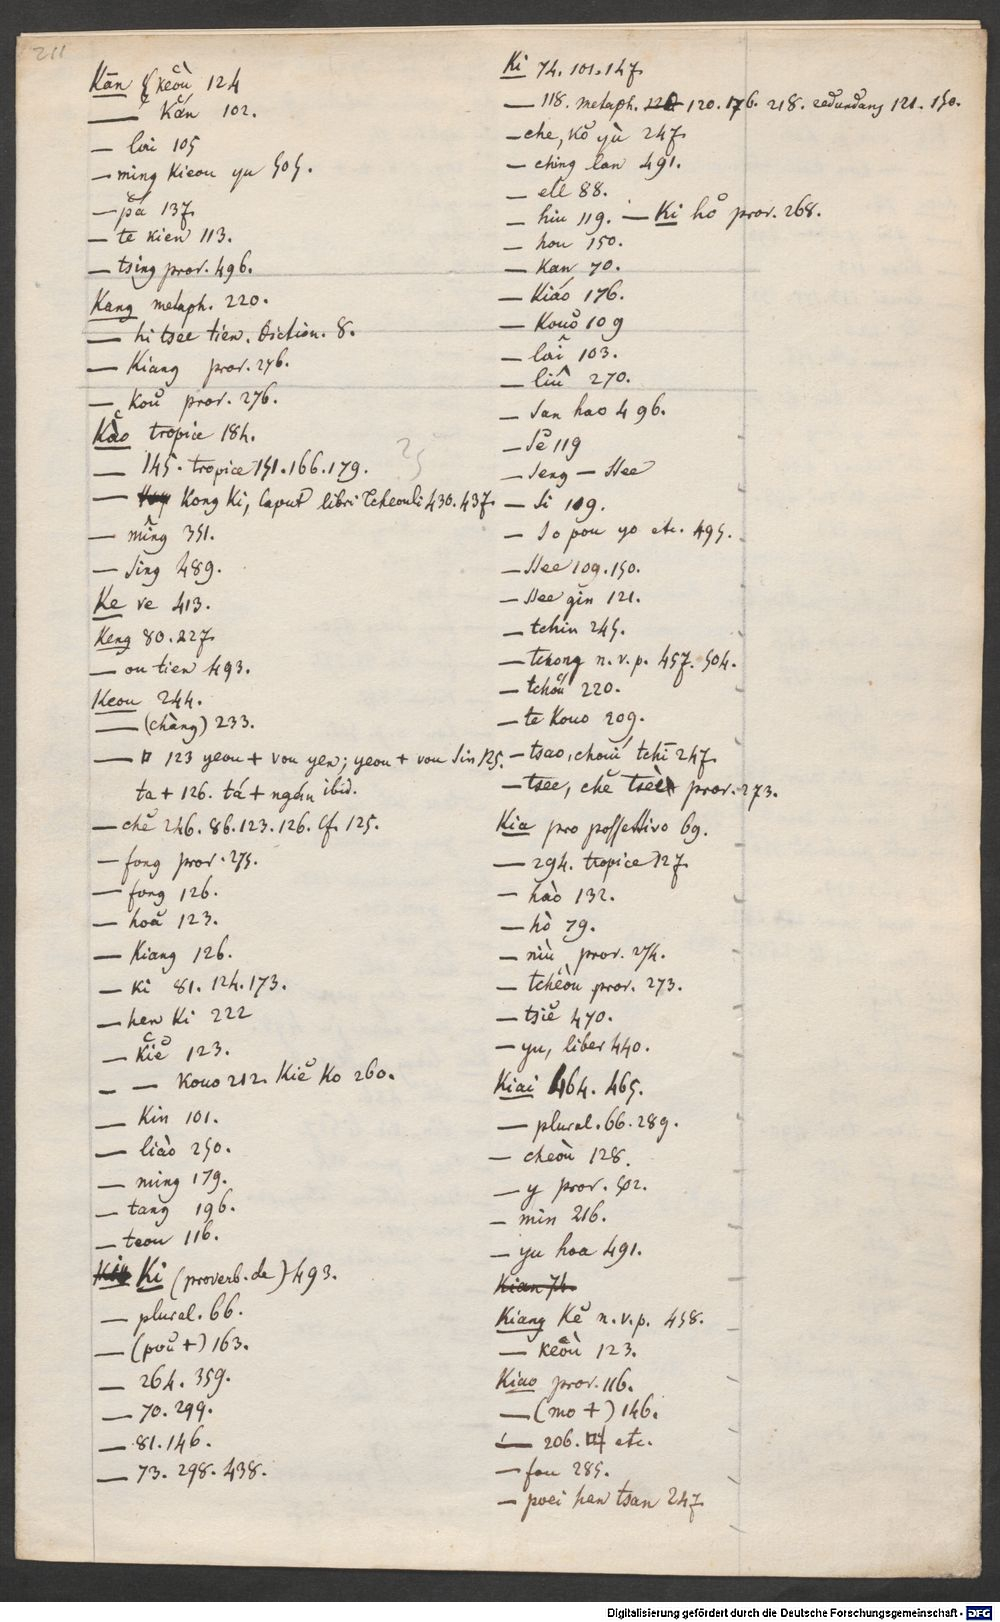 211
Kān keòu 124
— Kán 102.
— lai 105
— ming kieou yu 505.
— pă 137.
— te kien 113.
— tsing prov. 496.
Kang metaph. 220.
— hi tsee tien. Diction. 8.
— Kiang prov. 276.
— Koŭ prov. 276.
Kào tropice 184.
— 145. tropice 151. 166. 179.
— Kong Ki, Caput libri Tcheouli 430. 437.
— mîng 351.
— sing 489.
Ke ve 413.
Keng 80. 227.
— ou tien 493.
Keou 244.
— (chàng) 233.
— 123 yeou + vou yen; yeou + vou sin 125.
ta + 126. tá + ngán ibid.
— chĕ 246. 86. 123. 126. Cf. 125.
— fong prov. 275.
— fong 126.
— hoă 123.
— Kiang 126.
— Ki 81. 124. 173.
— hen Ki 222
— kiĕ 123.
— — Kouo 212. Kiĕ Ko 260.
— Kin 101.
— liào 250.
— ming 179.
— tang 196.
— teou 116.
Ki (proverb. de) 493.
— plural. 66.
— (poŭ +) 163.
— 264. 359.
— 70. 299.
— 81. 146.
— 73. 298. 438.
Ki 74. 101. 147.
— 118. metaph. 120. 176. 218. redundans 121. 150.
— che, kŏ yù 247.
— ching lan 491.
— ell 88.
— hiu 119. — Ki hŏ prov. 268.
— hou 150.
— Kan 70.
— Kiáo 176.
— Kouŏ 109
— lâi 103.
— liû 270.
— san hao 496.
— Sĕ 119
— seng — ssee
— si 109.
— so pou yo etc. 495.
— ssee 109. 150.
— ssee gin 121.
— tchin 245.
— tchong n. v. p. 457. 504.
— tchoŭ 220.
— te Kouo 209.
— tsao, chouì tchī 247.
— tsee, chĕ tsee prov. 273.
Kia pro possessivo 69.
— 294. tropice 127.
— hào 132.
— hò 79.
— niù prov. 274.
— tchéou prov. 273.
— tsiĕ 470.
— yu, liber 440.
Kiai 464. 465.
— plural. 66. 289.
— cheòu 128.
— y prov. 502.
— min 216.
— yu hoa 491.
Kian 74.
Kiang Kĕ n. v. p. 458.
— keòu 123.
Kiao prov. 116.
— (mo +) 146.
— 206. etc.
— fou 285.
— poei hen tsan 247.
Digitalisierung gefördert durch die Deutsche Forschungsgemeinschaft - DFG